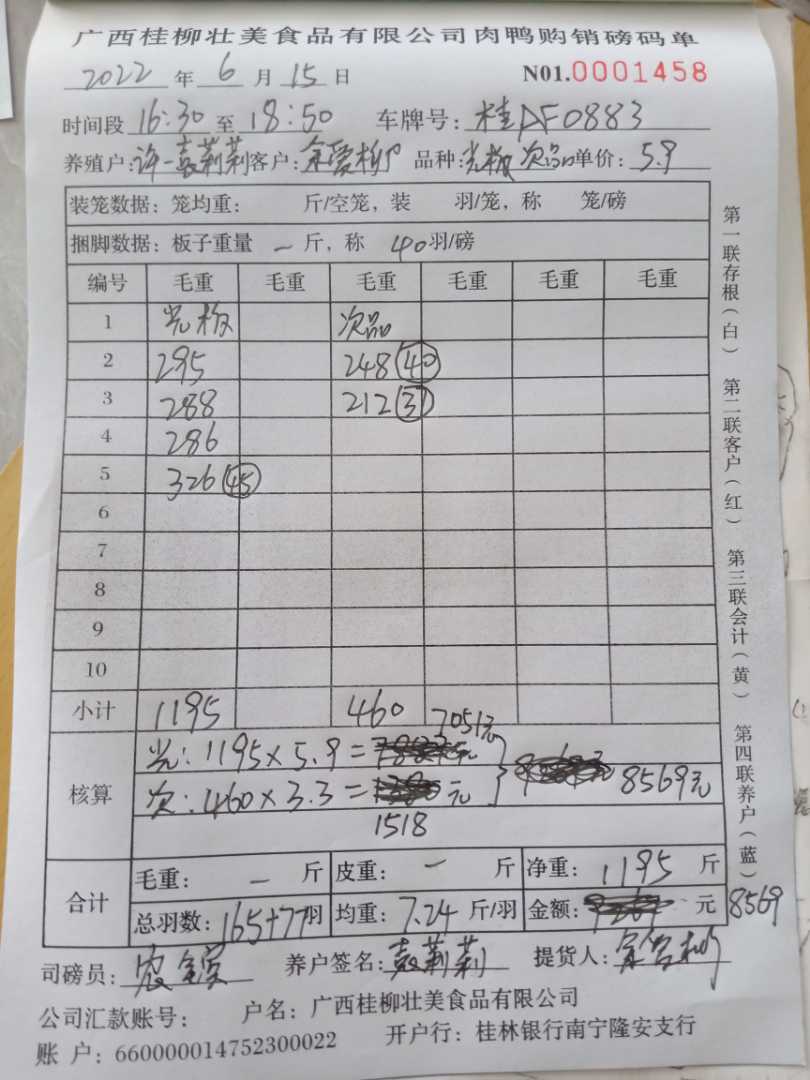 广西桂柳壮美食品有限公司肉鸭购销磅码单
2022 年 6 月 15 日 N01.0001458
时间段 16:30 至 18:50 车牌号: 桂AF0883
养殖户: 许一袁莉莉 客户: 品种: 光板 次品 单价: 5.9
装笼数据: 笼均重: 斤/空笼, 装 羽/笼, 称 笼/磅
捆脚数据: 板子重量 — 斤, 称 40 羽/磅
编号 毛重 毛重 毛重 毛重 毛重 毛重
1 光板 次品
2 295 248 (40)
3 288 212 (37)
4 286
5 326 (45)
6
7
8
9
10
小计 1195 460
7051元
核算
光: 1195×5.9= 元
次: 460×3.3= 元 8569元
1518
合计
毛重: — 斤 皮重: — 斤 净重: 1195 斤
总羽数: 165+77羽 均重: 7.24 斤/羽 金额: 元 8569
司磅员: 养户签名: 袁莉莉 提货人:
公司汇款账号: 户名: 广西桂柳壮美食品有限公司
账 户: 660000014752300022 开户行: 桂林银行南宁隆安支行
第一联存根(白) 第二联客户(红) 第三联会计(黄) 第四联养户(蓝)